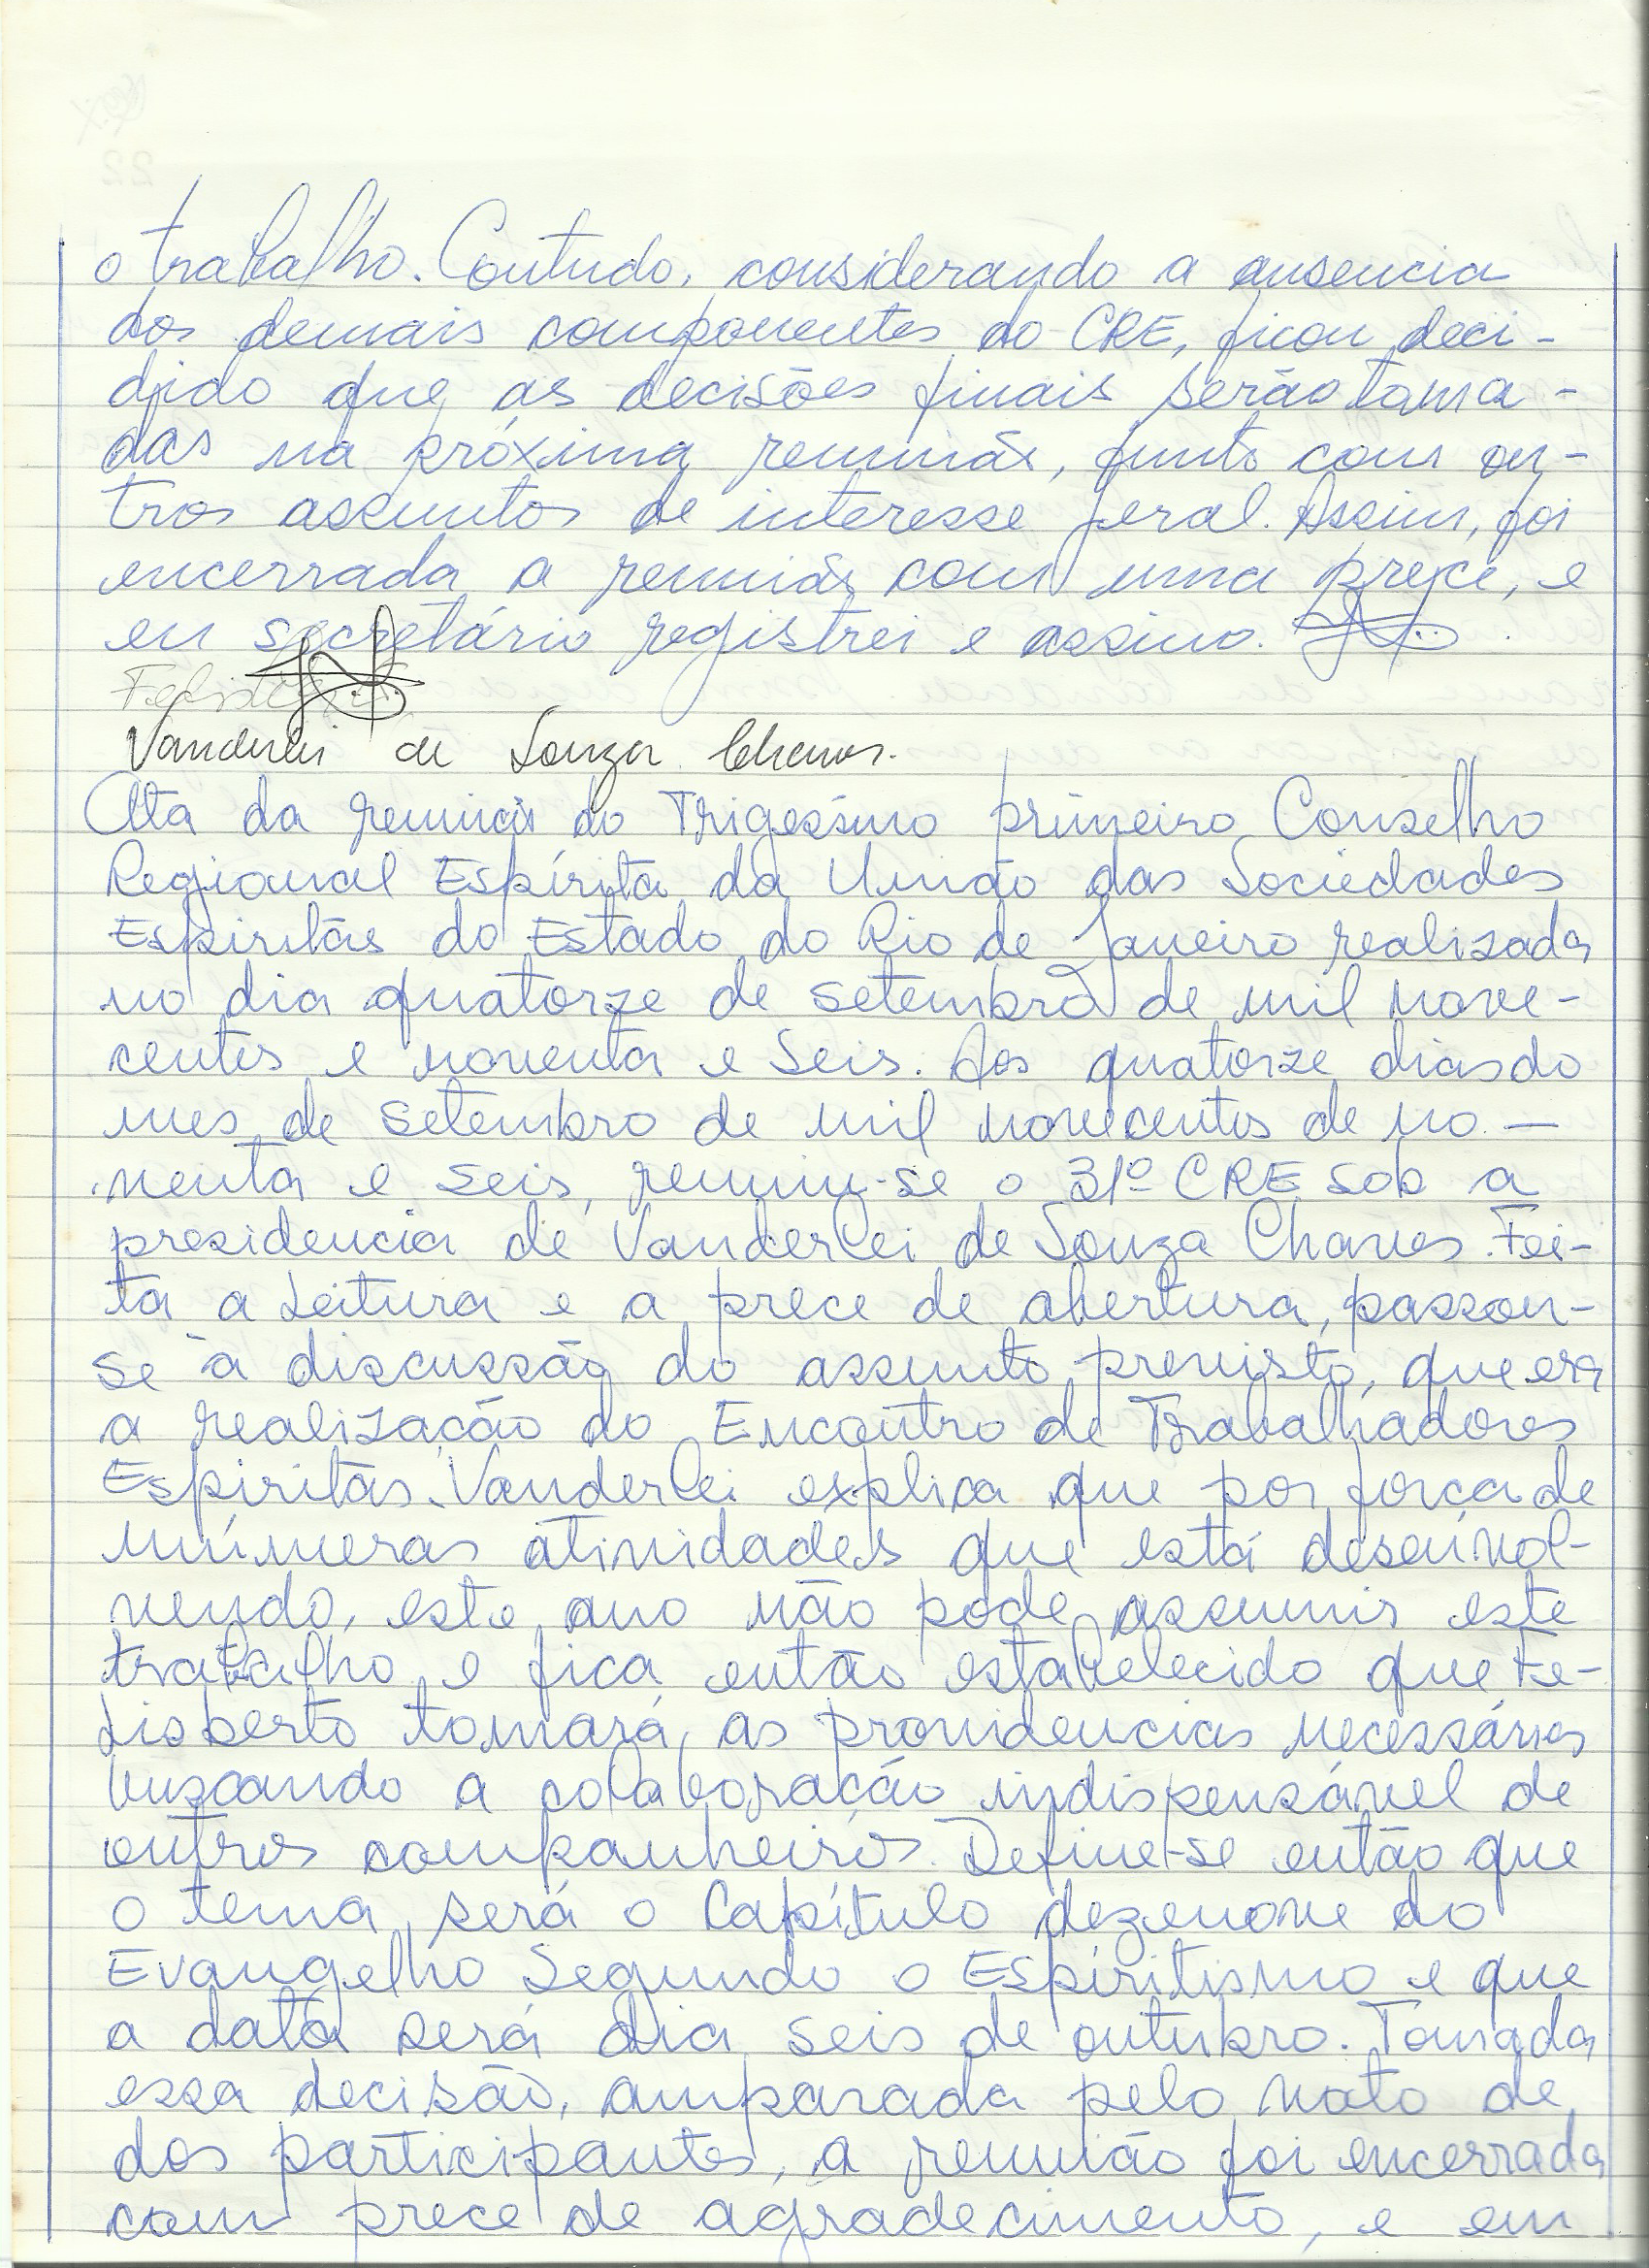 o trabalho. Contudo, considerando a ausencia
dos demais componentes do CRE, ficou deci-
dido que as decisões finais serão toma-
das na próxima reunião, junto com ou-
tros assuntos de interesse geral. Assim, foi
encerrada a reunião com uma prece, e
eu secretário registrei e assino.
Vanderlei de Souza Chaves.
Ata da reunião do Trigesimo primeiro Conselho
Regional Espírita da União das Sociedades
Espiritas do Estado do Rio de Janeiro realizada
no dia quatorze de setembro de mil nove-
centos e noventa e seis. Aos quatorze dias do
mes de setembro de mil novecentos de no-
venta e seis, reuniu-se o 31º CRE sob a
presidencia de Vanderlei de Souza Chaves. Fei-
ta a Leitura e a prece de abertura, passou-
se à discussão do assunto previsto, que era
a realização do Encontro de Trabalhadores
Espiritas. Vanderlei explica que por força de
inúmeras atividades que está desenvol-
vendo, este ano não pode assumir este
trabalho e fica então estabelecido que Fe-
lisberto tomará as providencias necessárias
buscando a colaboração indispensável de
outros companheiros. Define-se então que
o tema será o Capítulo dezenove do
Evangelho Segundo o Espiritismo e que
a data será dia seis de outubro. Tomada
essa decisão, amparada pelo voto de
dos participantes, a reunião foi encerrada
com prece de agradecimento, e eu